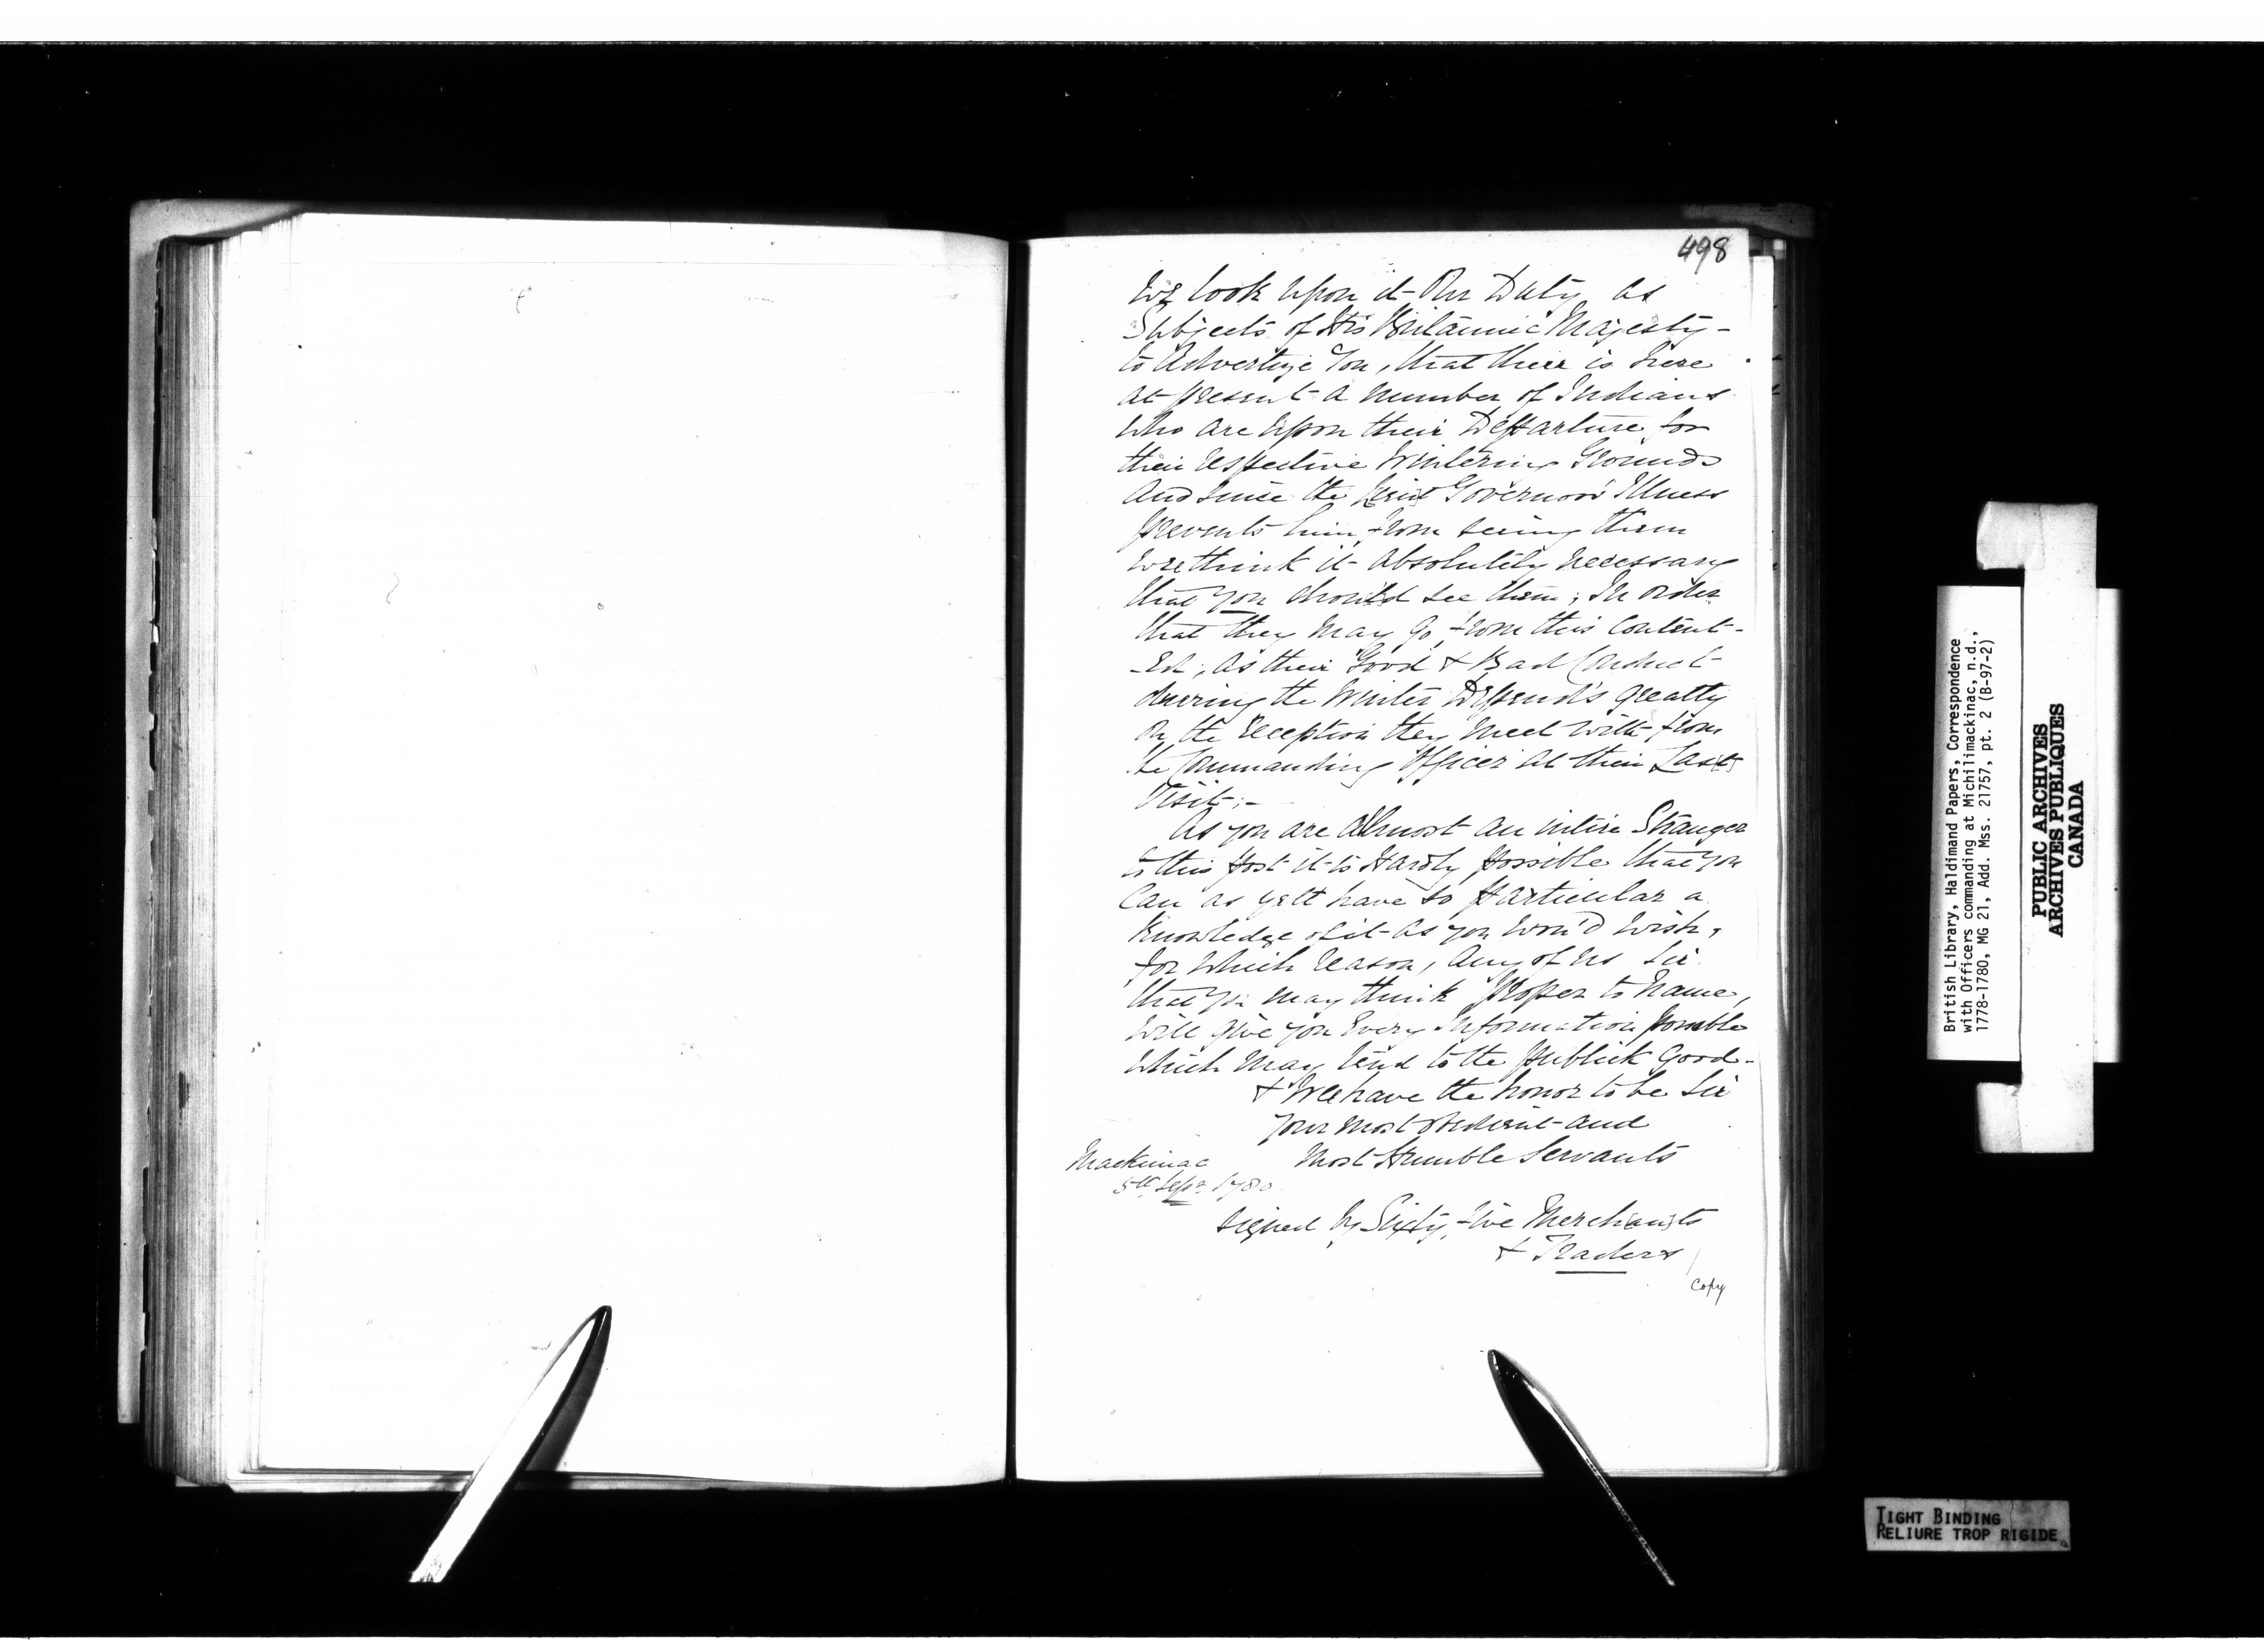 498
We look upon it Our Duty as
Subjects of His Britannic Majesty -
to Advertize You, that there is here
at present a number of Indians
who are upon their Departure for
their respective Wintering Grounds
And since the Lieut Governors' Illness
prevents him from seeing them
we think it absolutely necessary
that you should see them; In order
that they may go from this Content-
-Ed; as their Good & Bad Conduct
during the Winter Depend's greatly
On the reception they meet with from
the Commanding Officer at their Last
Visit;-
As you are almost an intire Stranger
to this Post it is Hardly Possible that you
Can as yett have so Particular a
Knowledge of it as you wou'd wish,
for which reason, Any of us Sir
that you may think Proper to name,
will give you Every Information possible
which may tend to the Publick Good -
& We have the honor to be Sir
Your most obedient and
Most Humble Servants
Mackinac
5th Sepr 1780
signed by Sixty, five Merchants
& Traders
Copy
British Library, Haldimand Papers, Correspondence
with Officers commanding at Michilimackinac, n.d.,
1778-1780, MG 21, Add. Mss. 21757, pt. 2 (B-97-2)
PUBLIC ARCHIVES
ARCHIVES PUBLIQUES
CANADA
TIGHT BINDING
RELIURE TROP RIGIDE